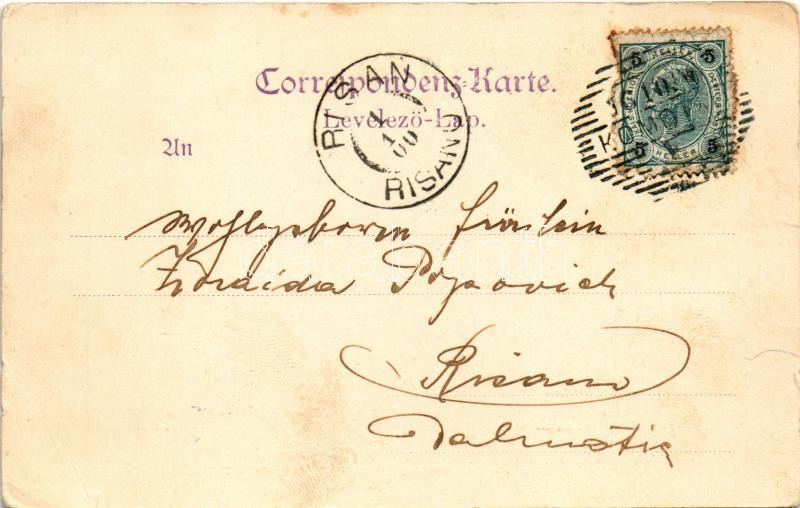 Correspondenz-Karte.
Levelező-Lap.
An
RISAN
1
1
00
RISANO
5 5
HELLER
5 5
Wohlgeborne Fräulein
Zoraida Popovich
Risano
Dalmatia